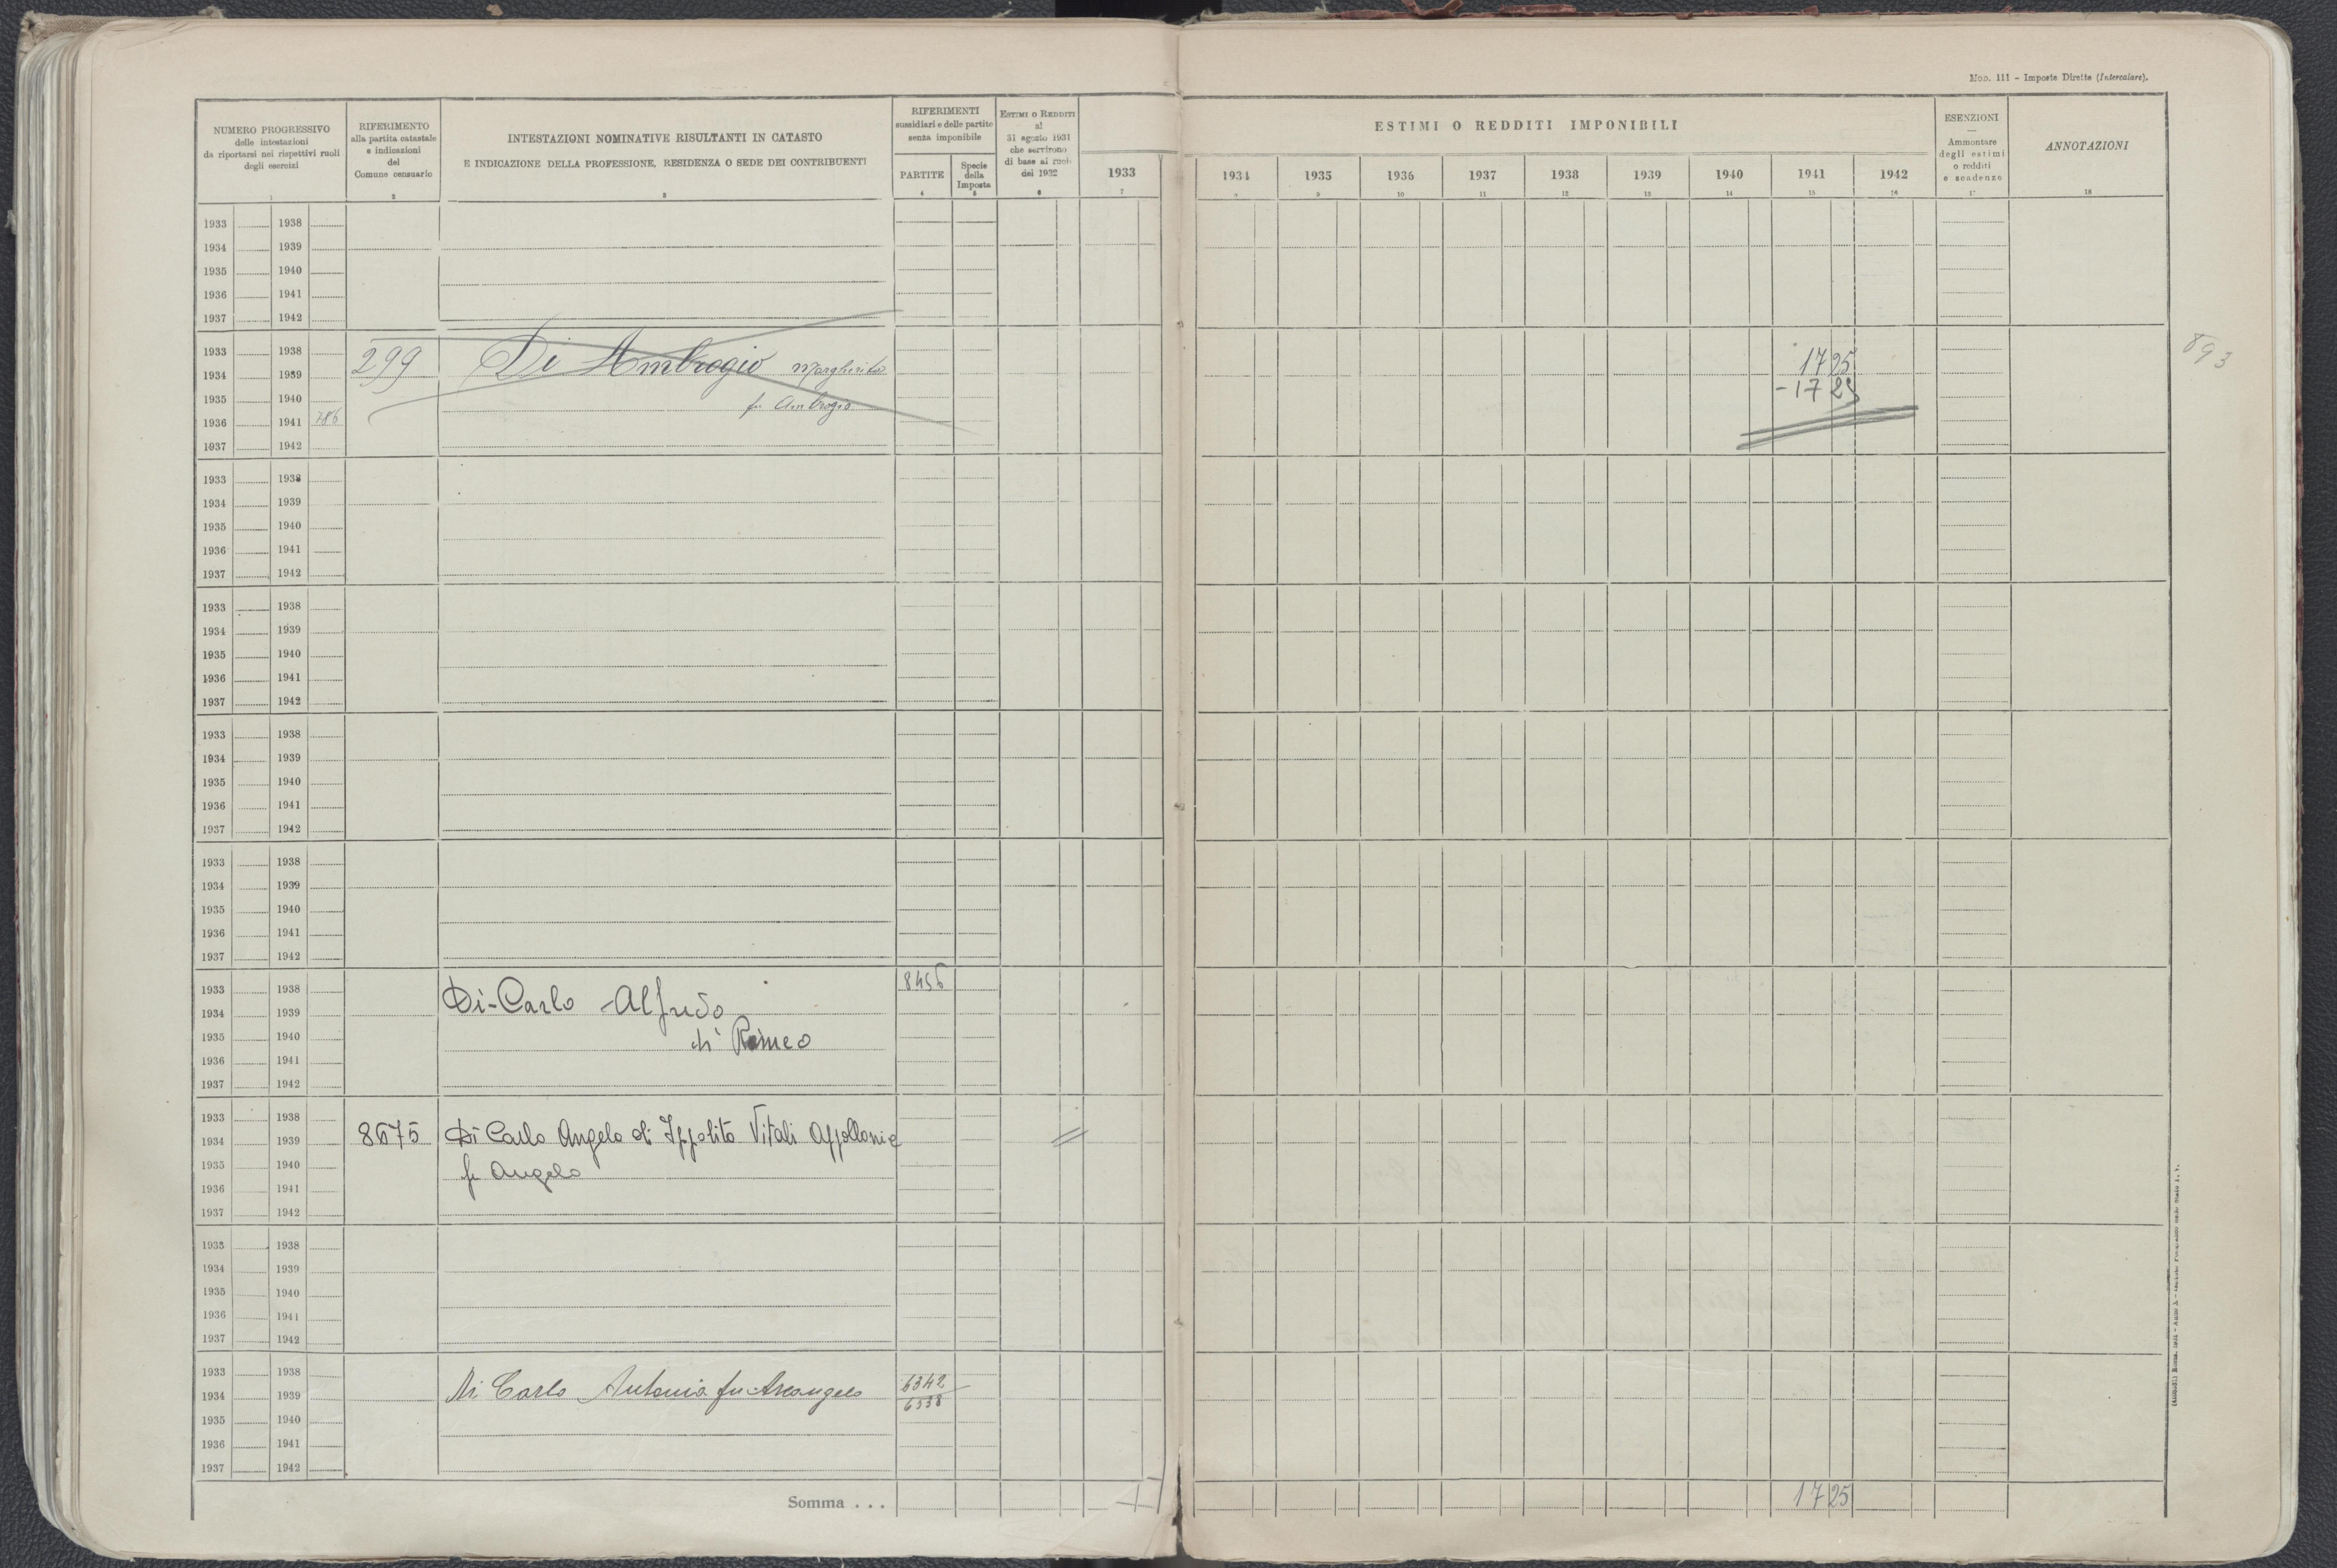 Mod. 111 - Imposte Dirette (Intercalare).
NUMERO PROGRESSIVO
delle intestazioni
da riportarsi nei rispettivi ruoli
degli esercizi
1
RIFERIMENTO
alla partita catastale
e indicazioni
del
Comune censuario
2
INTESTAZIONI NOMINATIVE RISULTANTI IN CATASTO
E INDICAZIONE DELLA PROFESSIONE, RESIDENZA O SEDE DEI CONTRIBUENTI
3
RIFERIMENTI
sussidiari e delle partite
senza imponibile
PARTITE
4
Specie
della
Imposta
5
ESTIMI O REDDITI
al
31 agosto 1931
che servirono
di base ai ruoli
del 1932
6
1933
7
ESTIMI O REDDITI IMPONIBILI
1934 1935 1936 1937 1938 1939 1940 1941 1942
9 10 11 12 13 14 15 16
ESENZIONI
Ammontare
degli estimi
o redditi
e scadenze
ANNOTAZIONI
18
1933 1938
1934 1939
1935 1940
1936 1941
1937 1942
1933 1938
299 Di Ambrogio Margherita 1725
1934 1939
fu Ambrogio -1725
1935 1940
1936 1941 786
1937 1942
893
1933 1938
1934 1939
1935 1940
1936 1941
1937 1942
1933 1938
1934 1939
1935 1940
1936 1941
1937 1942
1933 1938
1934 1939
1935 1940
1936 1941
1937 1942
1933 1938
1934 1939
1935 1940
1936 1941
1937 1942
1933 1938 8456
Di-Carlo Alfredo
1934 1939
di Romeo
1935 1940
1936 1941
1937 1942
1933 1938
1934 1939 8675 Di Carlo Angelo di Ippolito Vitali Appollonia
1935 1940 fu Angelo
1936 1941
1937 1942
1933 1938
1934 1939
1935 1940
1936 1941
1937 1942
1933 1938 6342
1934 1939 Di Carlo Antonia fu Arcangelo 6538
1935 1940
1936 1941
1937 1942
Somma . . . 1725